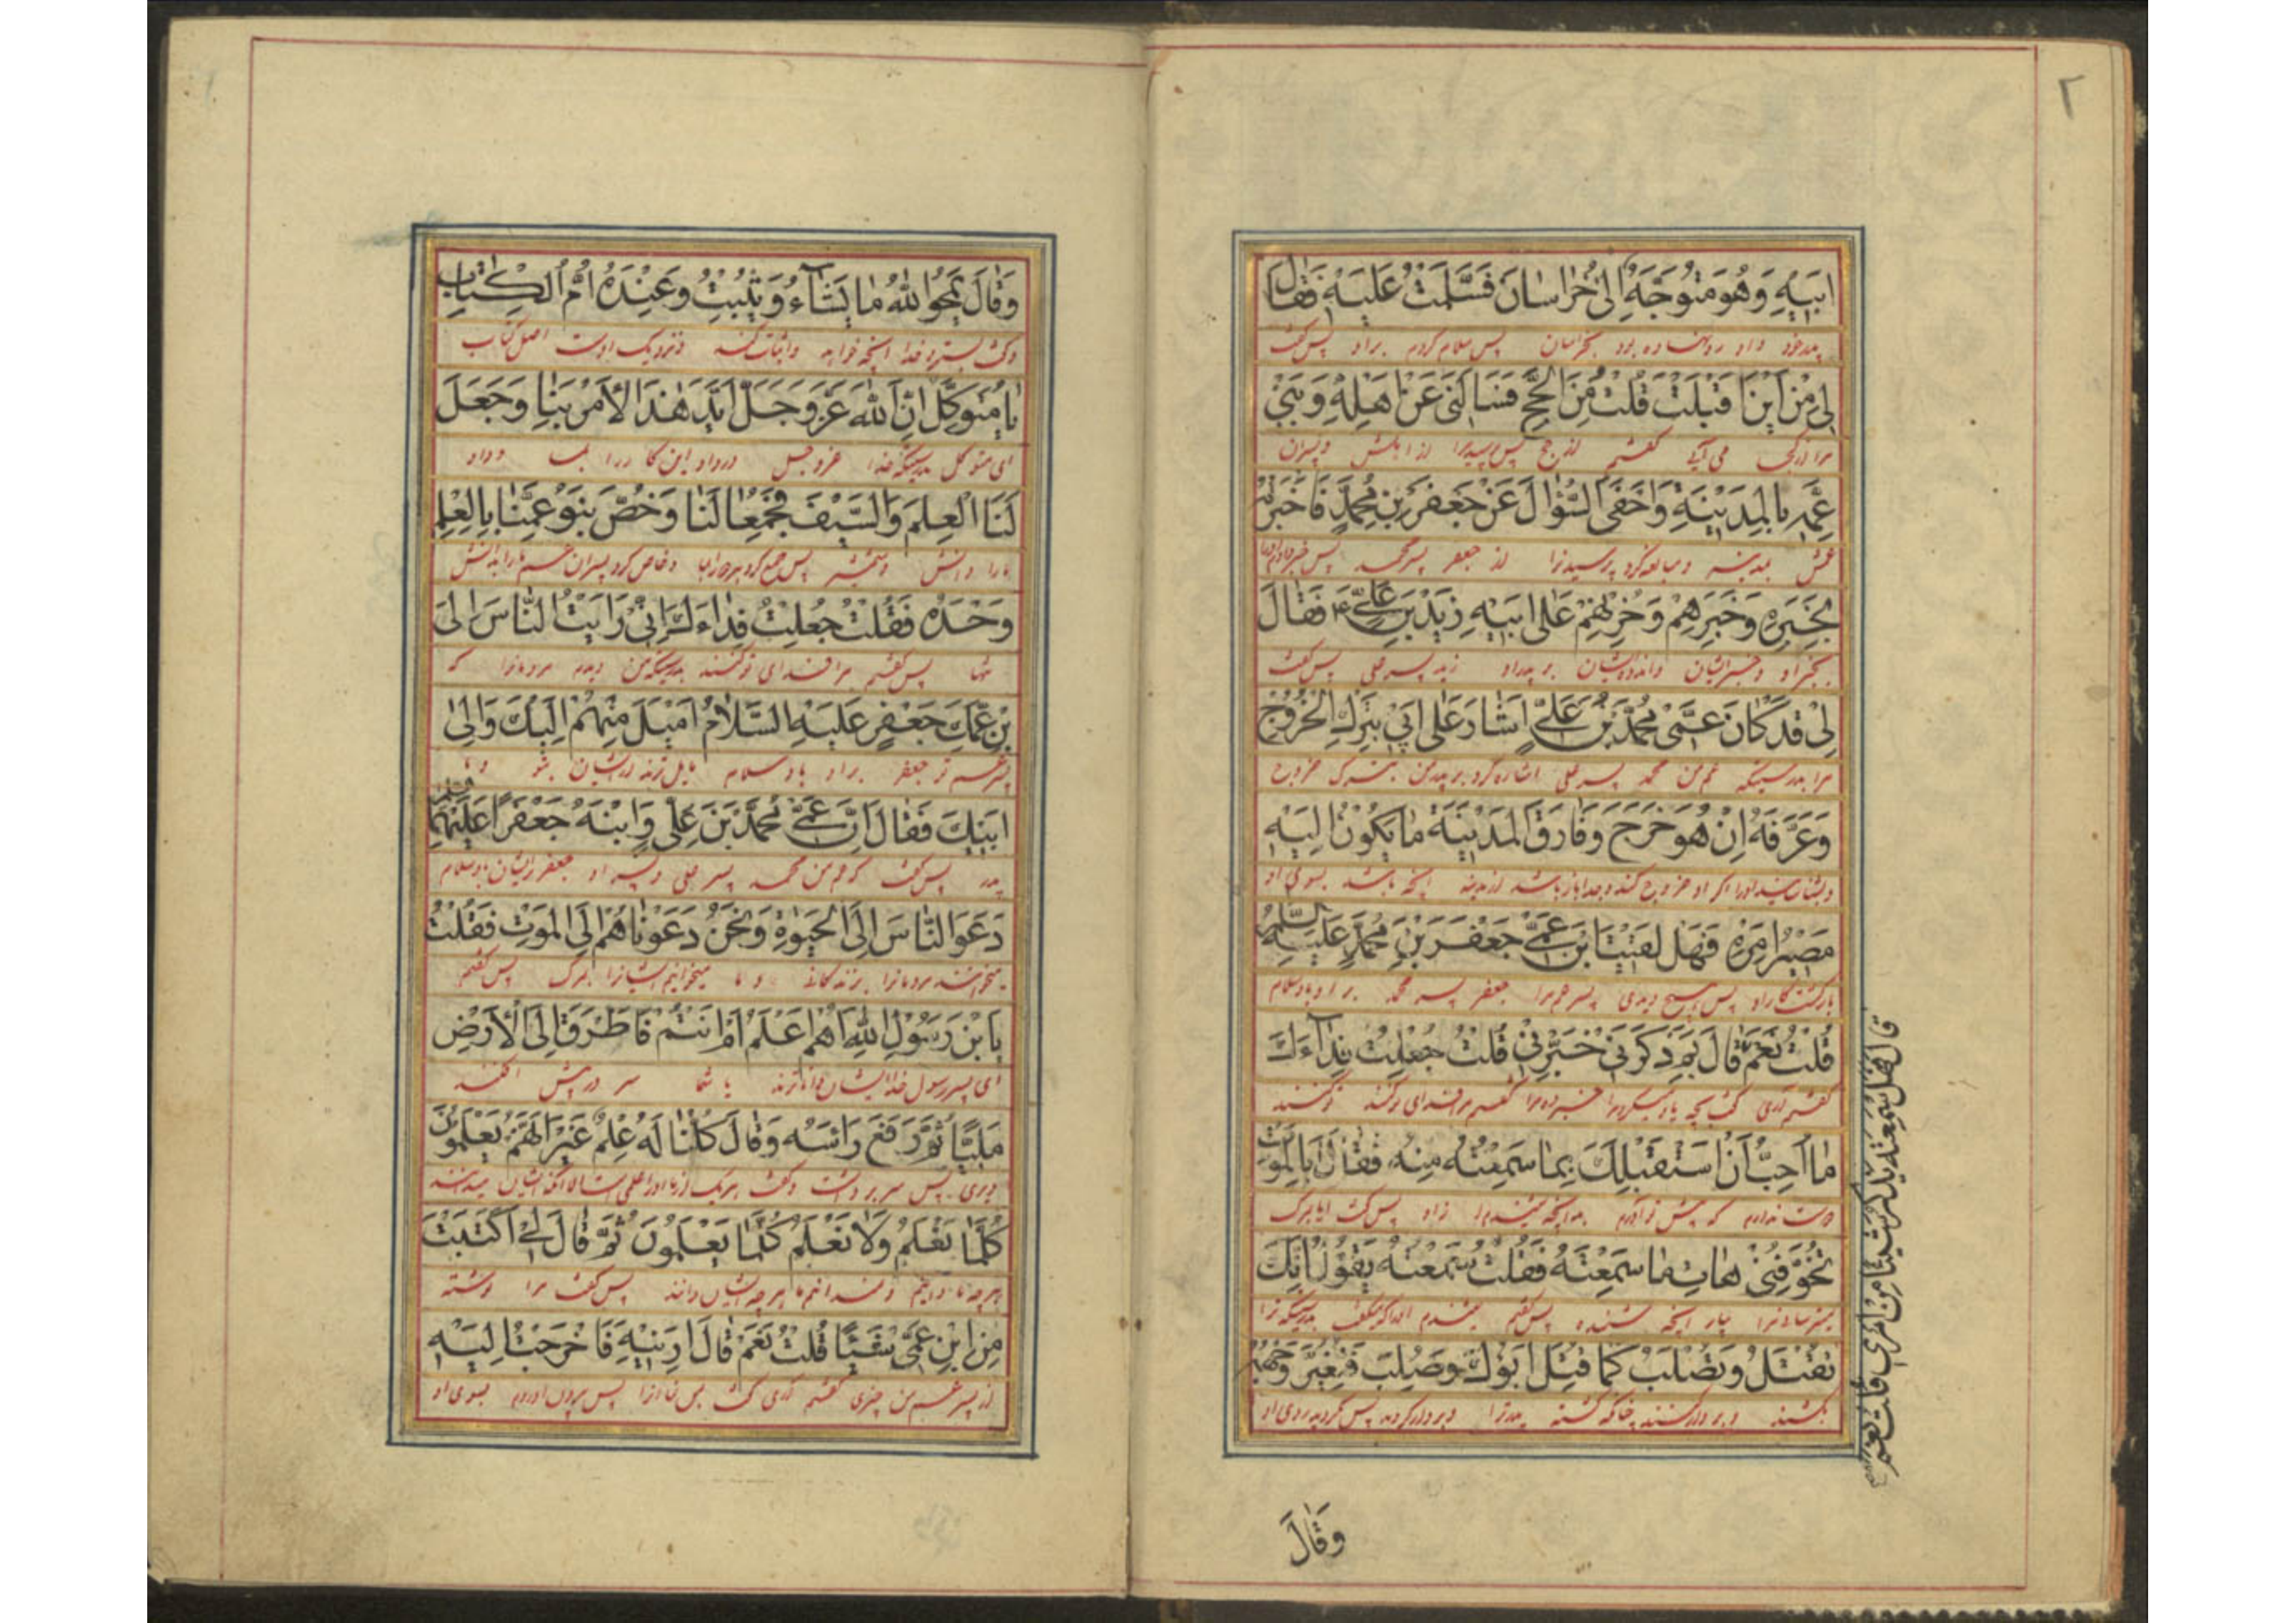 ٢
ابَيهِ وَهُوَ مُتَوَجِّهٌ اِلیٰ خُراسانَ فَسَلَّمْتُ عَلَيْهِ فَقالَ
پدر خود و او رونهاده بود بخراسان پس سلام کردم بر او پس گفت
لی مِنْ اَيْنَ اَقْبَلْتَ قُلْتُ مِنَ الْحَجِّ فَسَاَلَنی عَنْ اَهْلِهِ وَبَنی
مرا از کجا می آیی گفتم از حج پس پرسید مرا از اهلش و پسران
عَمِّهِ بِالْمَدينَةِ وَاَحْفَی السُّؤالَ عَنْ جَعْفَرِ بْنِ مُحَمَّدٍ فَاَخْبَرْتُهُ
عمش بمدینه و مبالغه کرد پرسیدنرا از جعفر پسر محمد پس خبر دادم اورا
بِخَبَرِهِ وَخَبَرِهِمْ وَحُزْنِهِمْ عَلیٰ ابَيهِ زَيْدِ بْنِ عَلِیٍّ ع فَقالَ
بخبر او و خبر ایشان و اندوه ایشان بر پدر او زید پسر علی پس گفت
لی قَدْ کانَ عَمّی مُحَمَّدُ بْنُ عَلِیٍّ اَشارَ عَلیٰ اَبی بِتَرْكِ الْخُرُوجِ
مرا بدرستیکه عم من محمد پسر علی اشاره کرد بر پدر من بترک خروج
وَعَرَّفَهُ اِنْ هُوَ خَرَجَ وَفارَقَ الْمَدينَةَ ما يَكُونُ اِلَيْهِ
و بشناسانید اورا اگر او خروج کند و جدا باشد از مدینه آنچه باشد بسوی او
مَصيرُ اَمْرِهِ فَهَلْ لَقيتَ ابْنَ عَمّی جَعْفَرَ بْنَ مُحَمَّدٍ عَلَيْهِ السَّلامُ
بازگشت کار او پس هیچ دیدی پسر عم مرا جعفر پسر محمد بر او باد سلام
قُلْتُ نَعَمْ قالَ بِمَ ذَكَرَنی خَبِّرْنی قُلْتُ جُعِلْتُ فِدآءَكَ
گفتم آری گفت بچه یاد میکرد مرا خبر ده مرا گفتم مرا فدای تو کنند
ما اُحِبُّ اَنْ اَسْتَقْبِلَكَ بِما سَمِعْتُهُ مِنْهُ فَقالَ اَبِالْمَوْتِ
دوست ندارم که پیش تو آورم بدانچه شنیدم از او پس گفت آیا بمرگ
تُخَوِّفُنی هاتِ ما سَمِعْتَهُ فَقُلْتُ سَمِعْتُهُ يَقُولُ اِنَّكَ
میترسانی مرا بیار آنچه شنیده پس گفتم شنیدم اورا که میگفت بدرستیکه ترا
تُقْتَلُ وَتُصْلَبُ كَما قُتِلَ اَبُوكَ وَصُلِبَ فَتَغَيَّرَ وَجْهُهُ
بکشند و بردار کنند چنانکه کشته پدر ترا و بردار کردند پس بگردید روی او
قالَ فَهَلْ سَمِعْتَهُ يَذْكُرُ شَيْئًا مِنْ اَمْری قُلْتُ نَعَمْ
وَقالَ
وَقالَ يَمْحُوا اللهُ ما يَشآءُ وَيُثْبِتُ وَعِنْدَهُ اُمُّ الْكِتابِ
و گفت بسترد خدا آنچه خواهد و اثبات کند و نزدیک اوست اصل کتاب
يا مُتَوَكِّلُ اِنَّ اللهَ عَزَّ وَجَلَّ اَيَّدَ هٰذَا الْاَمْرَ بِنا وَجَعَلَ
ای متوکل بدرستیکه خدا عزوجل این کار را بما و داد
لَنَا الْعِلْمَ وَالسَّيْفَ فَجُمِعا لَنا وَخُصَّ بَنُو عَمِّنا بِالْعِلْمِ
مارا دانش و شمشیر پس جمع کرد هر دو را بما و خاص کرد پسران عم مارا بدانش
وَحْدَهُ فَقُلْتُ جُعِلْتُ فِداءَكَ اِنّی رَاَيْتُ النّاسَ اِلیَ
تنها پس گفتم مرا فدای تو کنند بدرستیکه من دیدم مردمانرا که
بْنِ عَمِّكَ جَعْفَرٍ عَلَيْهِ السَّلامُ اَمْيَلَ مِنْهُمْ اِلَيْكَ وَاِلیٰ
پسر عم تو جعفر بر او باد سلام مایل ترند از ایشان بتو و با
اَبيكَ فَقالَ اِنَّ عَمّی مُحَمَّدَ بْنَ عَلِیٍّ وَابْنَهُ جَعْفَرًا عَلَيْهِمَا السلم
پدر پس گفت که عم من محمد پسر علی و پسر او جعفر بر ایشان باد سلام
دَعَوَا النّاسَ اِلَی الْحَيٰوةِ وَنَحْنُ دَعَوْناهُمْ اِلَی الْمَوْتِ فَقُلْتُ
میخواندند مردمانرا بزندگانی و ما میخوانیم ایشانرا بمرگ پس گفتم
يَا بْنَ رَسُولِ اللهِ اَهُمْ اَعْلَمُ اَمْ اَنْتُمْ فَاَطْرَقَ اِلَی الْاَرْضِ
ای پسر رسول خدا ایشان داناترند یا شما سر در پیش افکند
مَلِيًّا ثُمَّ رَفَعَ رَاْسَهُ وَقالَ كُلُّنا لَهُ عِلْمٌ غَيْرَ اَنَّهُمْ يَعْلَمُونَ
دیری پس سر برداشت و گفت هر یک از ما اورا علمی است الا آنکه ایشان میدانند
كُلَّما نَعْلَمُ وَلا نَعْلَمُ كُلَّما يَعْلَمُونَ ثُمَّ قالَ لی اَكَتَبْتَ
هر چه ما دانیم و نمیدانیم ما هر چه ایشان دانند پس گفت مرا نوشته
مِنِ ابْنِ عَمّی شَيْئًا قُلْتُ نَعَمْ قالَ اَرِنيهِ فَاَخْرَجْتُ اِلَيْهِ
از پسر عم من چیزی گفتم آری گفت بمن نما آنرا پس بیرون آوردم بسوی او